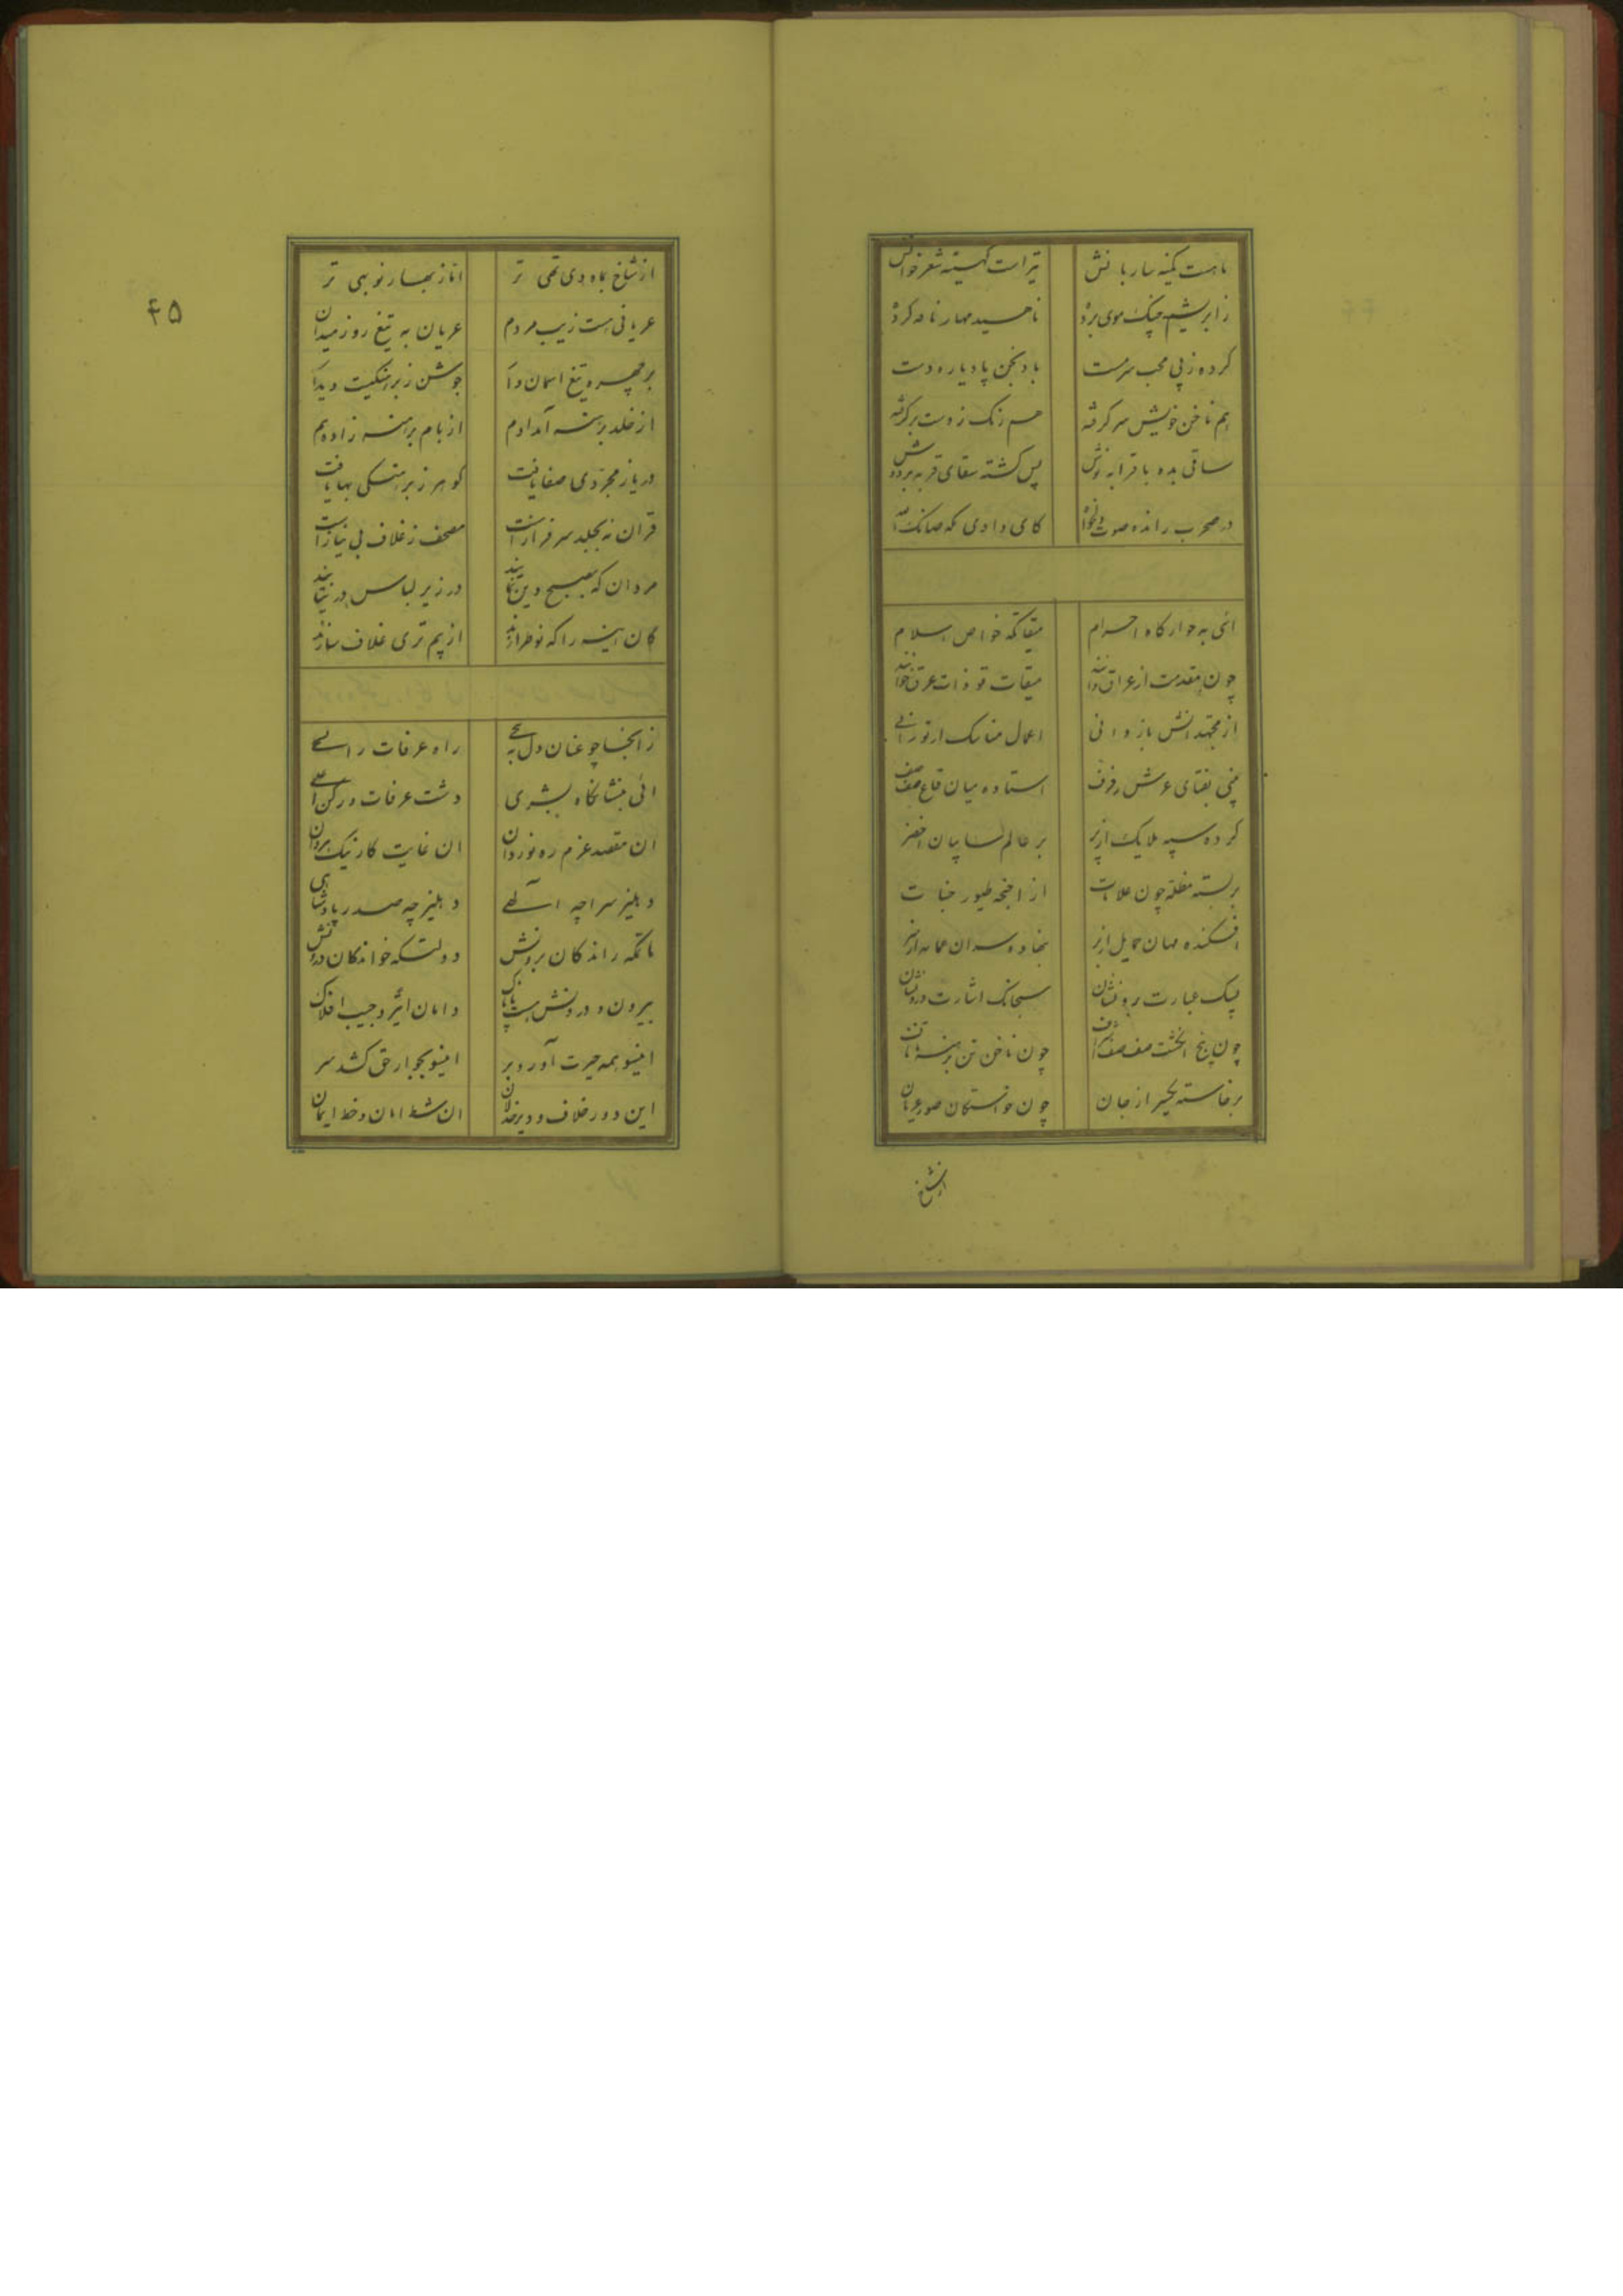 ماهست کمینه ساربانش تیر است کهینه شعرخوانش
زابریشم چنک موی برده ناهید مهار ناقه کرده
کرده ز پی محب سرمست باد بجن پا دیاره دست
هم ناخن خویش سر کرفته هم زنک ز دست برکرفته
ساقی بده با قرابه نوش پس کشته سقای قربه بردوش
در صحرب رانده صوفی کای وادی مکه
ائی به حوارکاه احرام میقاتکه خواص اسلام
چون مقدمت از عراق دانند میقات تو ذات عرق خوانند
از مجتهدانش بازدانی اعمال مناسک ار توانی
بینی بفنای عرش رفرف استاده میان قاع صفصف
کرده سپه ملایک از پر بر عالم سایبان اخضر
بربسته مظله چون علامات از اجنحه طیور جنات
افکنده مهان حمایل از بر بنهاده سران عمامه از سر
لبیک عبارت برونشان سبحانک اشارت درونشان
چون پنج انکشت صف صف چون ناخن تن برهنه
برخاسته بحیر از جان چون خواستکان صور عریان
از شاخ
۴۵
از شاخ بماه دی تهی تر اما ز بهار نو بهی تر
عریانی هست زیب مردم عریان به تیغ روز میدان
بر چهره تیغ اسمان وار جوشن ز برهنکیست دیدار
از خلد برهنه آمد ادم از بام برهنه زاد هم
دریا ز مجردی صفا یافت کوهر ز برهنکی بها یافت
قران نه بجلد سرفرازست مصحف ز غلاف بی نیازاست
مردان که بسیج دین نمایند در زیر لباس در نیایند
کان اینه را که نو طرازند از بیم تری غلاف سازند
زانجا چو عنان دل به راه عرفات را
ائی بنشانکاه بشری دشت عرفات و رکن
ان مقصد عزم ره نوردان ان غایت کار نیک مردان
دهلیز سراچه آلهی دهلیز چه صدر پادشاهی
ماتمکه راندکان برونش دولتکه خواندکان درونش
بیرون و درونش هست دامان اثیر و جیب افلاک
اینسو همه حیرت آورد بر اینسو بجوار حق کشد سر
این دور خلاف و دیر خذلان ان شط امان و خط ایمان